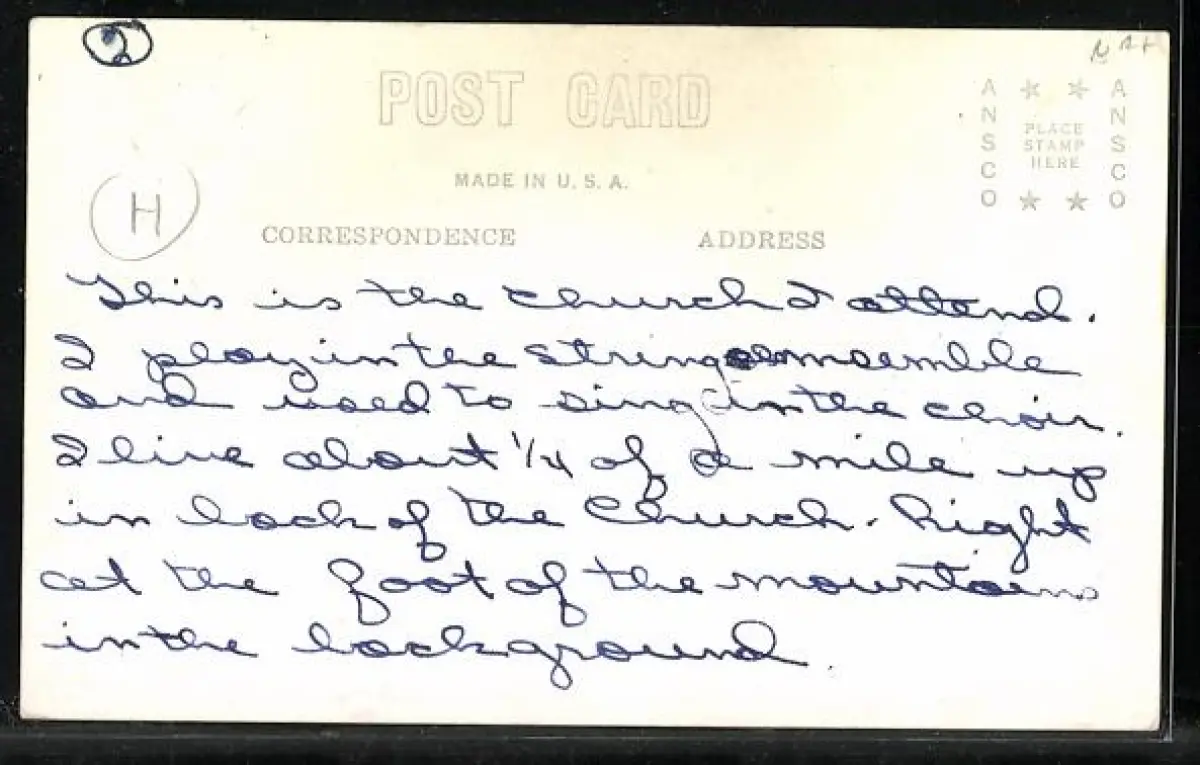 2
POST CARD
MADE IN U. S. A.
ANSCO
PLACE
STAMP
HERE
ANSCO
H
CORRESPONDENCE ADDRESS
This is the church I attend.
I play in the string ensemble
and used to sing in the choir.
I live about 1/4 of a mile up
in back of the Church. Right
at the foot of the mountains
in the background.